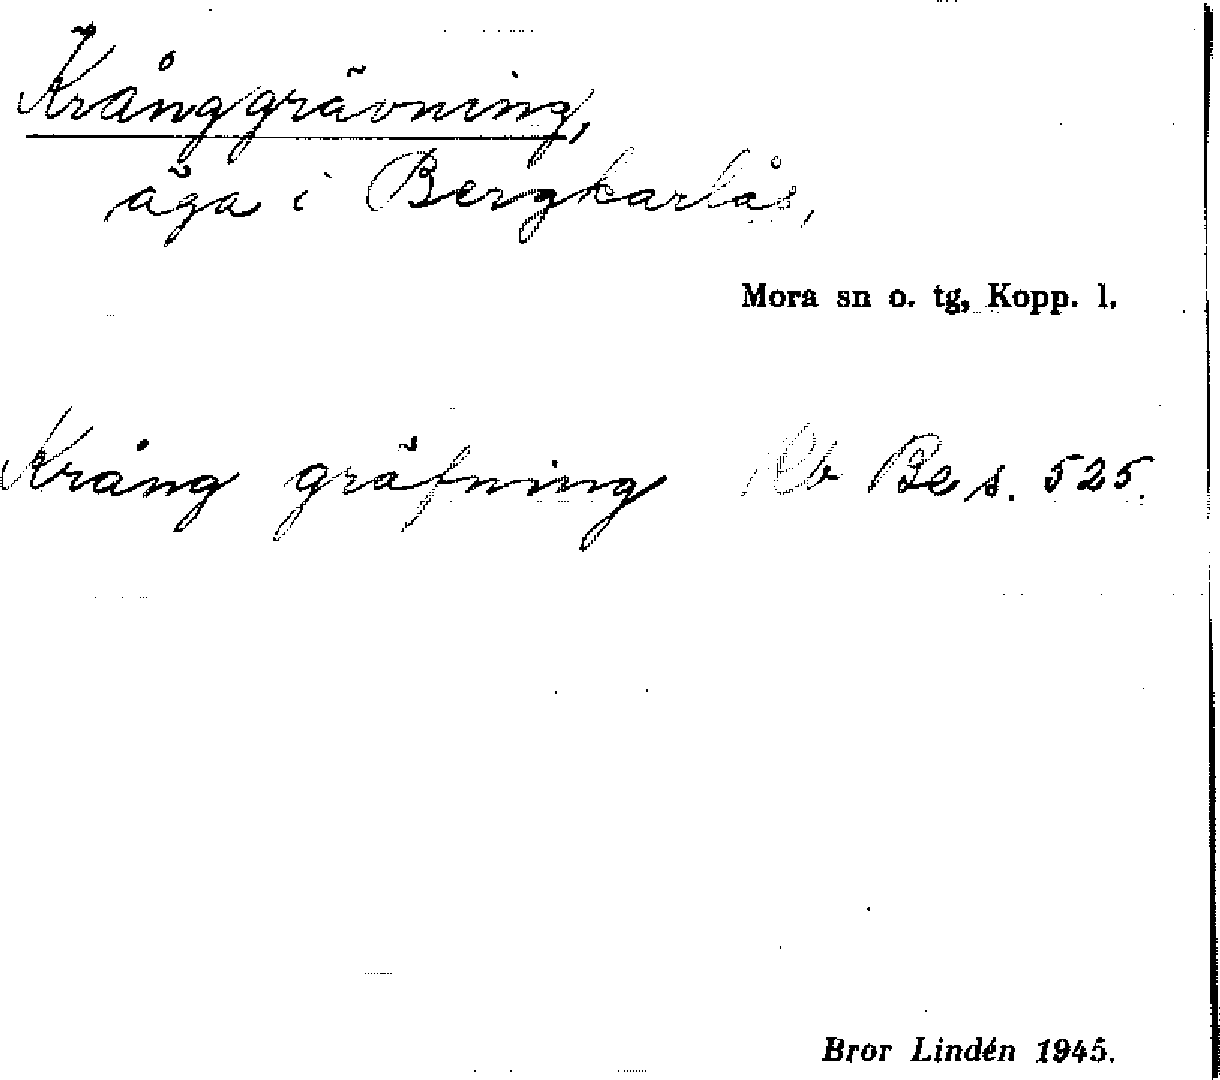 Krånggrävning,
äga i Bergkarlås,
Mora sn o. tg, Kopp. l.
Krång gräfning Rb Be s. 525.
Bror Lindén 1945.